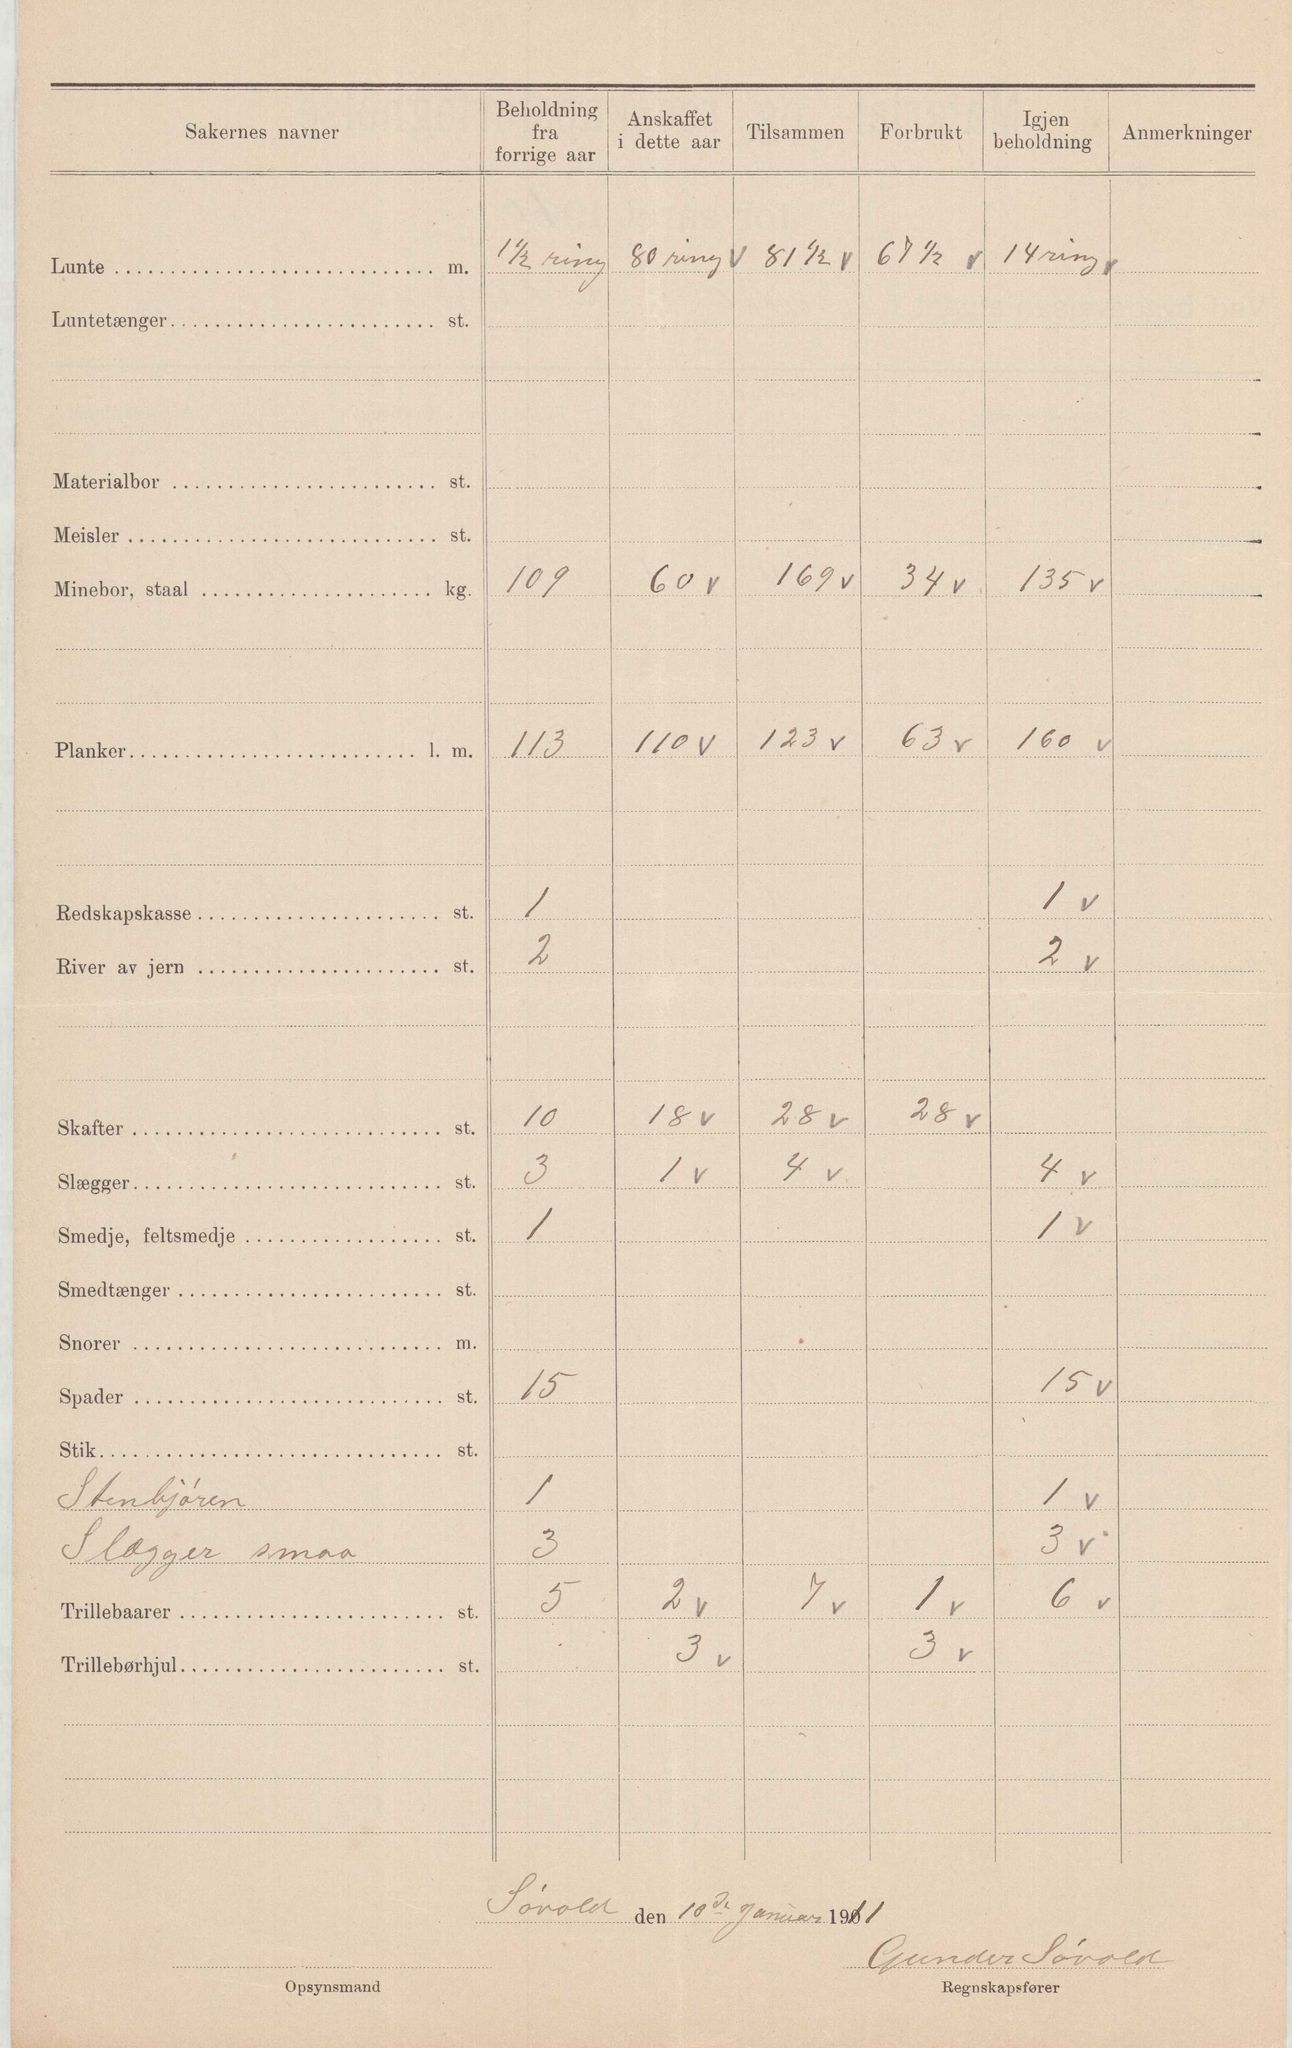 Sakernes navner Beholdning fra forrige aar Anskaffet i dette aar Tilsammen Forbrukt Igjen beholdning Anmerkninger
Lunte m. 1 1/2 ring 80 ring v 81 1/2 v 67 1/2 v 14 ring v
Luntetænger st.
Materialbor st.
Meisler st.
Minebor, staal kg. 109 60 v 169 v 34 v 135 v
Planker l. m. 113 110 v 123 v 63 v 160 v
Redskapskasse st. 1 1 v
River av jern st. 2 2 v
Skafter st. 10 18 v 28 v 28 v
Slægger st. 3 1 v 4 v 4 v
Smedje, feltsmedje st. 1 1 v
Smedtænger st.
Snorer m.
Spader st. 15 15 v
Stik st.
Stenbjøren 1 1 v
Slægger smaa 3 3 v
Trillebaarer st. 5 2 v 7 v 1 v 6 v
Trillebørhjul st. 3 v 3 v
Sövold den 10de Januar 1911
Gunder Sövold
Opsynsmand Regnskapsfører